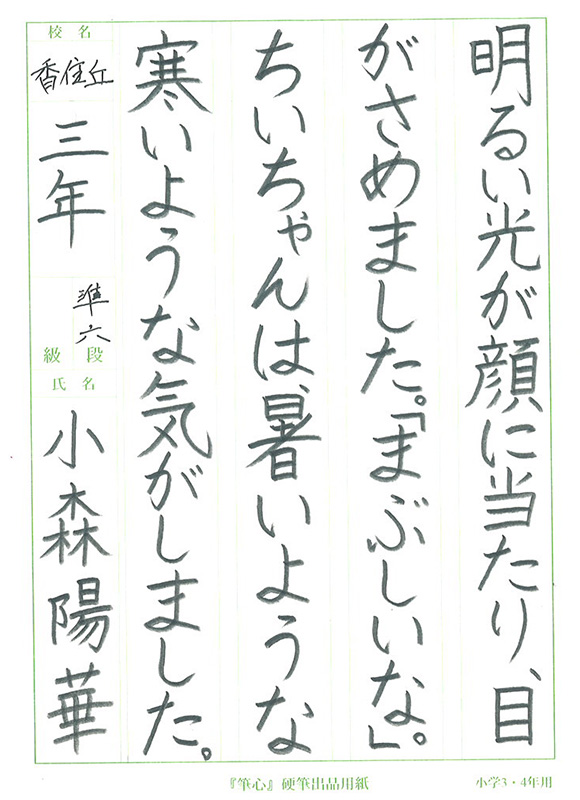 明るい光が顔に当たり、目
がさめました。「まぶしいな」。
ちいちゃんは、暑いような
寒いような気がしました。
校名
香住丘
三年
準六
級段
氏名
小森陽華
『筆心』硬筆出品用紙
小学3・4年用